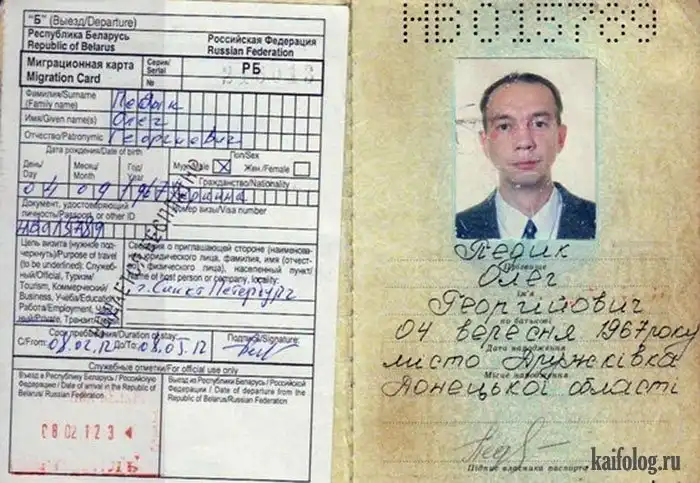 "Б" (Выезд/Departure)
Республика Беларусь
Republic of Belarus
Российская Федерация
Russian Federation
Миграционная карта
Migration Card
Серия/
Serial
РБ
№
Фамилия/Surname
(Family name)
Педик
Имя/Given name(s)
Олег
Отчество/Patronymic
Георгиевич
Дата рождения/Date of birth
Пол/Sex
День/
Day
Месяц/
Month
Год/
Year
Муж./Male
Жен./Female
04 09 1967
Гражданство/Nationality
Украина
Документ, удостоверяющий
личность/Passport or other ID
Номер визы/Visa number
НВ015789
Цель визита (нужное под-
черкнуть)/Purpose of travel
(to be underlined): Служеб-
ный/Official, Туризм/
Tourism, Коммерческий/
Business, Учеба/Education
Работа/Employment,
Частный/Private, Транзит/
Сведения о приглашающей стороне (наименова-
ние юридического лица, фамилия, имя (отчест-
во) физического лица), населенный пункт/
Name of host person or company, locality:
г. Санкт Петербург
Срок пребывания/Duration of stay:
Подпись/Signature:
С/From: 08.02.12 До/To: 08.05.12
Служебные отметки/For official use only
Въезд в Республику Беларусь / Российскую
Федерацию / Date of arrival in the Republic of
Belarus/ Russian Federation
Выезд из Республики Беларусь/ Российской Федерации
/ Date of departure from the Republic of
Belarus/Russian Federation
08 02 12 3
НВ015789
Педик
Прізвище
Олег
ім'я
Георгійович
по батькові
04 вересня 1967 року
Дата народження
місто Дружківка
Місце народження
Донецької області
Підпис власника паспорта
kaifolog.ru